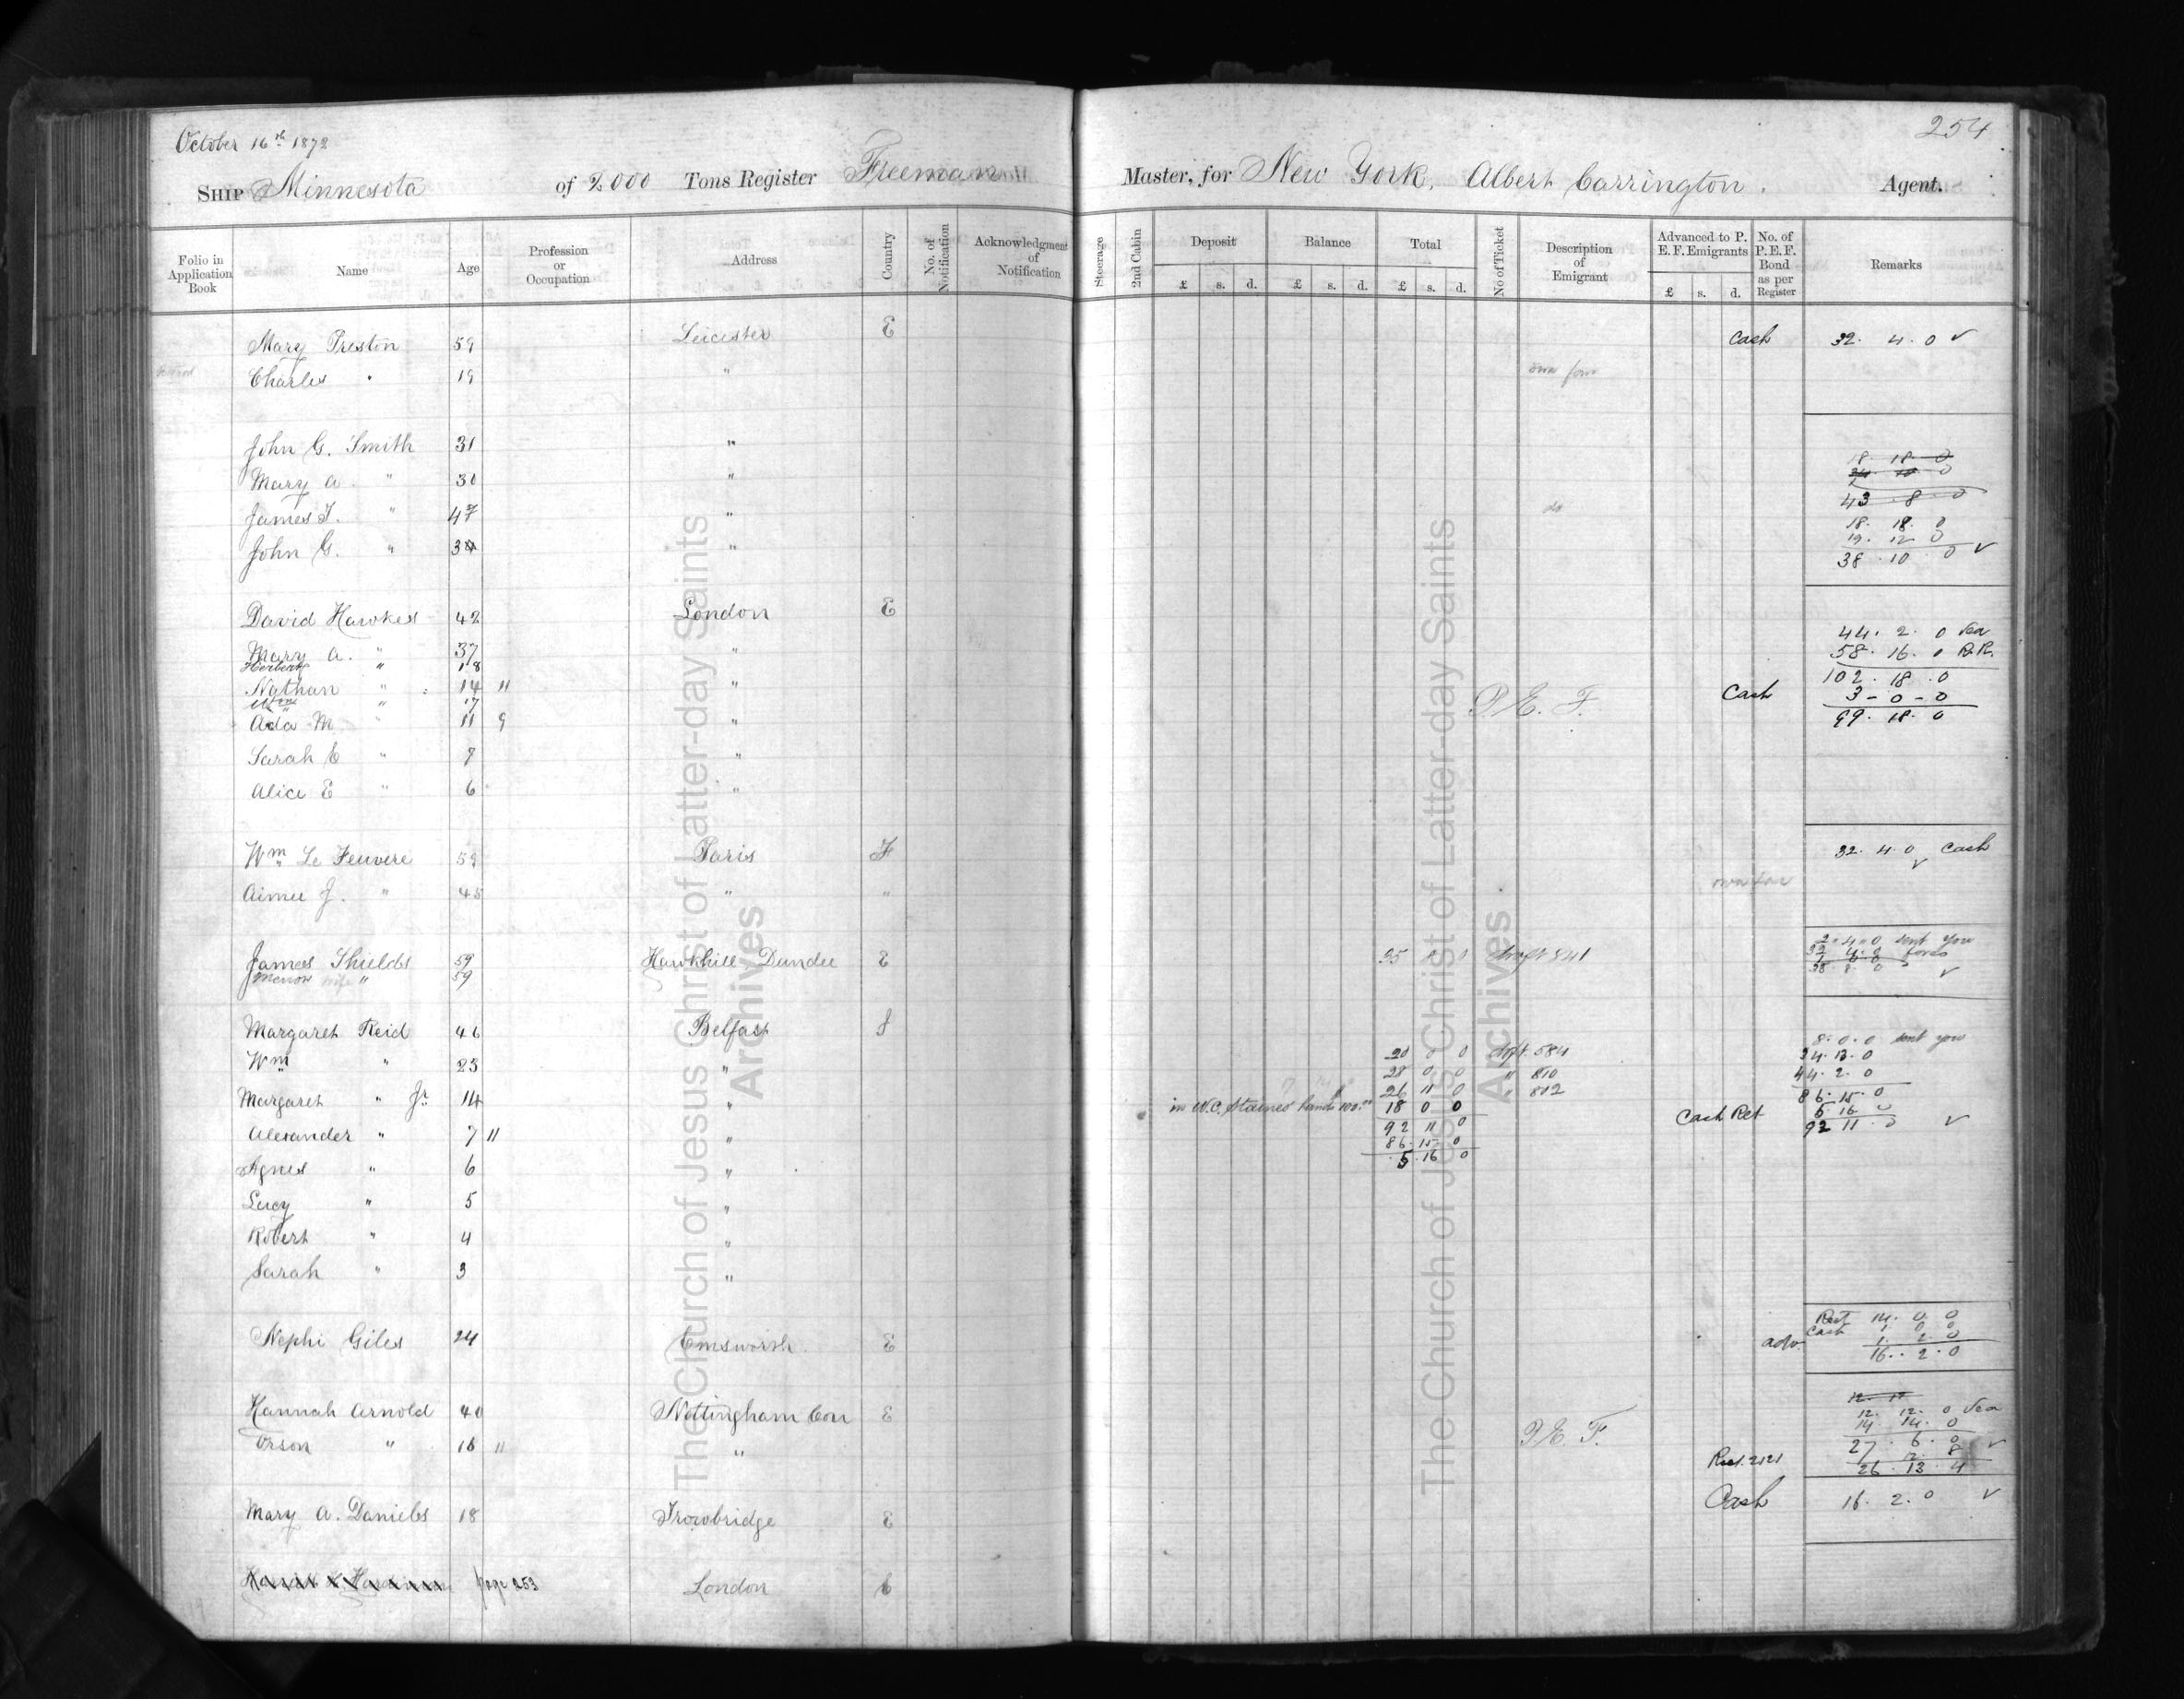 October 16th 1872
254
SHIP Minnesota of 2000 Tons Register Freeman Master, for New York. Albert Carrington. Agent.
Folio in Application Book Name Age Profession or Occupation Address Country No. of Notification Acknowledgment of Notification Steerage 2nd Cabin Deposit Balance Total No of Ticket Description of Emigrant Advanced to P. E. F. Emigrants No. of P. E. F. Bond as per Register Remarks
£ s. d. £ s. d. £ s. d. £ s. d.
Mary Preston 59 Leicester E Cash 32. 4. 0 ✓
Charles " 19 "
John G. Smith 31 "
18. 18. 0
Mary A. " 30 "
43. 8. 0
James T. " 47 " do
18. 18. 0
19. 12 0
John G. " "
38. 10. 0 ✓
David Hawkes 42 London E
44. 2. 0 Sea
Mary A. " 37 "
58. 16. 0 R.R.
Herbert " 18
102. 18. 0
Nathan " 14 11 " P. E. F. Cash
3 - 0 - 0
Wm " 17
99. 18. 0
Ada M " 11 9 "
Sarah E " 7 "
Alice E " 6 "
Wm Le Feuvere 59 Paris F 32. 4. 0 Cash ✓
Aimee J. " 45 " "
2. 4. 0 sent you
James Shields 59 Hawkhill Dundee E draft 841
wife " 59
38. 8. 0 ✓
Margaret Reid 46 Belfast I
8. 0. 0 sent you
Wm " 23 " 20 0 0 dft. 584 34. 13. 0
28 0 0 " 810 44. 2. 0
Margaret " Jr. 14 " 26 11 0 " 802 86. 15. 0
in W.C. Staines hands 100.00 18 0 0 Cash Ret 5. 16 0
92 11 0 92 11 0 ✓
Alexander " 7 11 " 86. 15 0
Agnes " 6 " 5. 16 0
Lucy " 5 "
Robert " 4 "
Sarah " 3 "
14. 0. 0
Cash 1. 0 0
Nephi Giles 24 Emsworth E adv. 1. 2 0
16. 2. 0
Hannah Arnold 40 Nottingham Con E
12. 12. 0 Sea
14. 14. 0
Orson " 16 11 " P. E. F. 27. 6. 0 ✓
26. 13. 4
Cash 16. 2. 0 ✓
Mary A. Daniels 18 Trowbridge E
page 253 London E
The Church of Jesus Christ of Latter-day Saints
Archives
The Church of Jesus Christ of Latter-day Saints
Archives